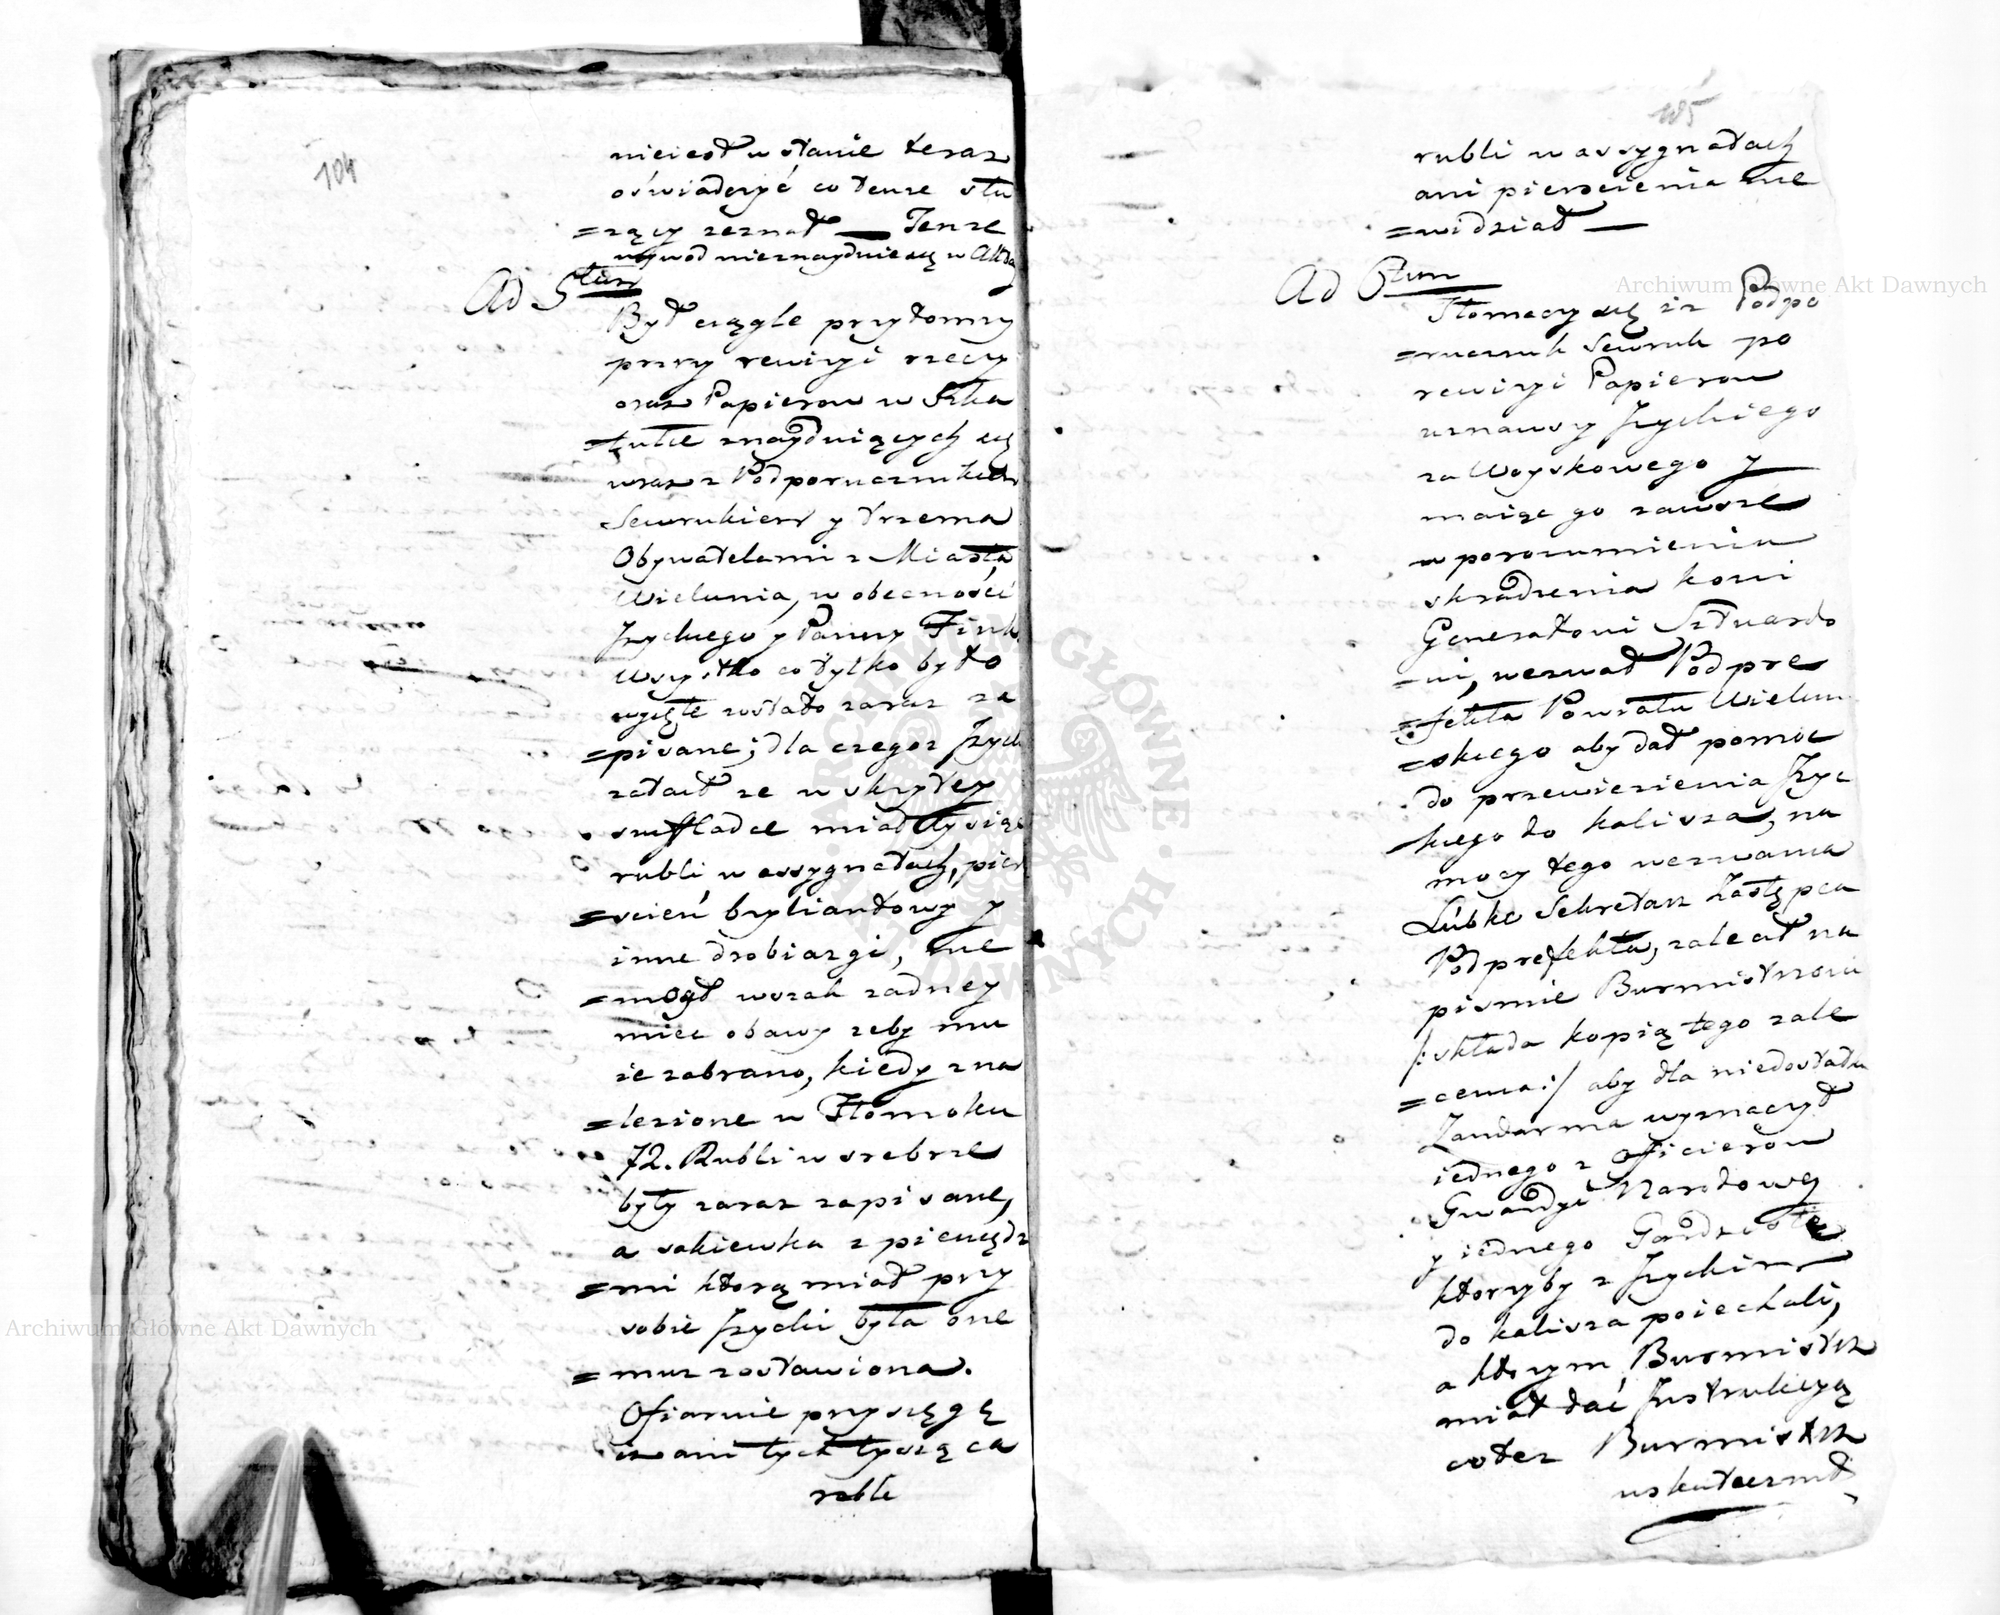 104
nieiest w stanie teraz
oświadczyć co tenże słu
=zący zeznał — Tenze
wywód nieznayduie się w Akta
Ad 5tum
Był ciągle przytomny
przy rewizyi rzeczy
oraz Papierow w Szka
=tułce znayduiących się
wraz z Podporucznikiem
Sewrukiem y trzema
Obywatelami z Miasta
Wielunia, w obecności
Jzyckiego y Panny Fink.
Wszystko co tylko było
wyięte zostało zaraz za
=pisane; dla czegoz Jzycki
zataił ze w skrytey
szuffladce miał tysiąc
rubli w assygnatach, pier
=scień bryliantowy y
inne drobiazgi, nie
=mogł wszak zadney
miec obawy zeby mu
ie zabrano, kiedy zna
=lezione w Tłomoku
72. Rubli w srebrze
były zaraz zapisane,
a sakiewka z pieniędz
=mi ktorą miał przy
sobie Jzycki była one
=muz zostawiona.
Ofiaruie przysięgę
iz ani tych tysiąca
rubli
105
rubli w assygnatach
ani pierscienia nie
=widział —
Ad 6tum
Tłomaczy się iz Podpo
=rucznik Sewruk po
rewizyi Papierow
uznawszy Jzyckiego
za Woyskowego y
maiąc go zawsze
w porozumieniu
skradzenia koni
Generałowi Sztuardo
=wi, wezwał Podpre
=fekta Powiatu Wielun
=skiego aby dał pomoc
do przewiezienia Jzyc
kiego do Kalisza, na
mocy tego wezwania
Lübke Sekretarz Zastępca
Podprefekta, zalecił na
pismie Burmistrzowi
/: składa kopią tego zale
=cenia :/ aby dla niedostatku
Zandarma wyznaczył
iednego z Officierow
Gwardyi Narodowey
y iednego Gwardzistę
ktorzyby z Jzyckim
do Kalisza poiechali,
a ktorym Burmistrz
miał dać Jnstrukcyą
co tez Burmistrz
uskutecznił
Archiwum Główne Akt Dawnych
Archiwum Główne Akt Dawnych
ARCHIWUM GŁÓWNE AKT DAWNYCH